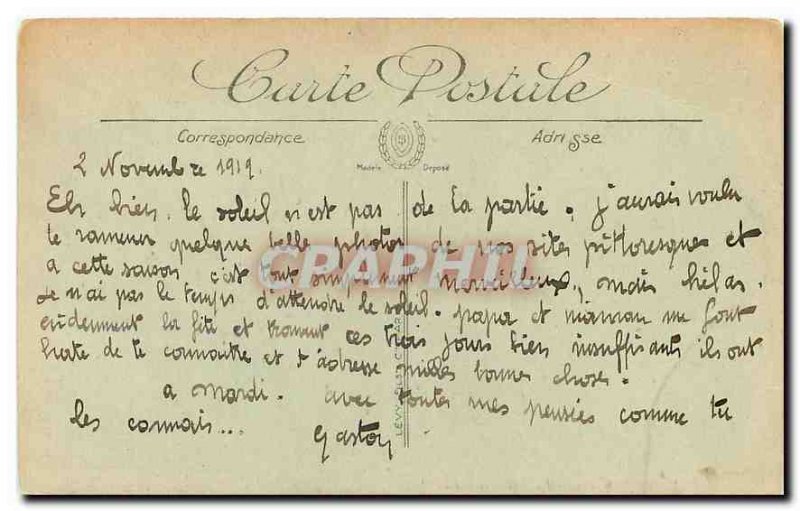 Carte Postale
Correspondance
Adresse
Modèle Déposé
2 Novembre 1919.
Eh bien, le soleil n'est pas de la partie, j'aurais voulu
te ramener quelque belle photos de nos sites pittoresques et
a cette saison c'est tout simplement merveilleux, mais hélas.
Je n'ai pas le temps d'attendre le soleil. papa et maman me font
évidemment la fête et trouvent ces trois jours bien insuffisants ils ont
hate de te connaitre et t'adresse milles bonnes choses.
a mardi. avec toutes mes pensées comme tu
les connais...
Gaston
CPAPHIL
LÉVY FILS